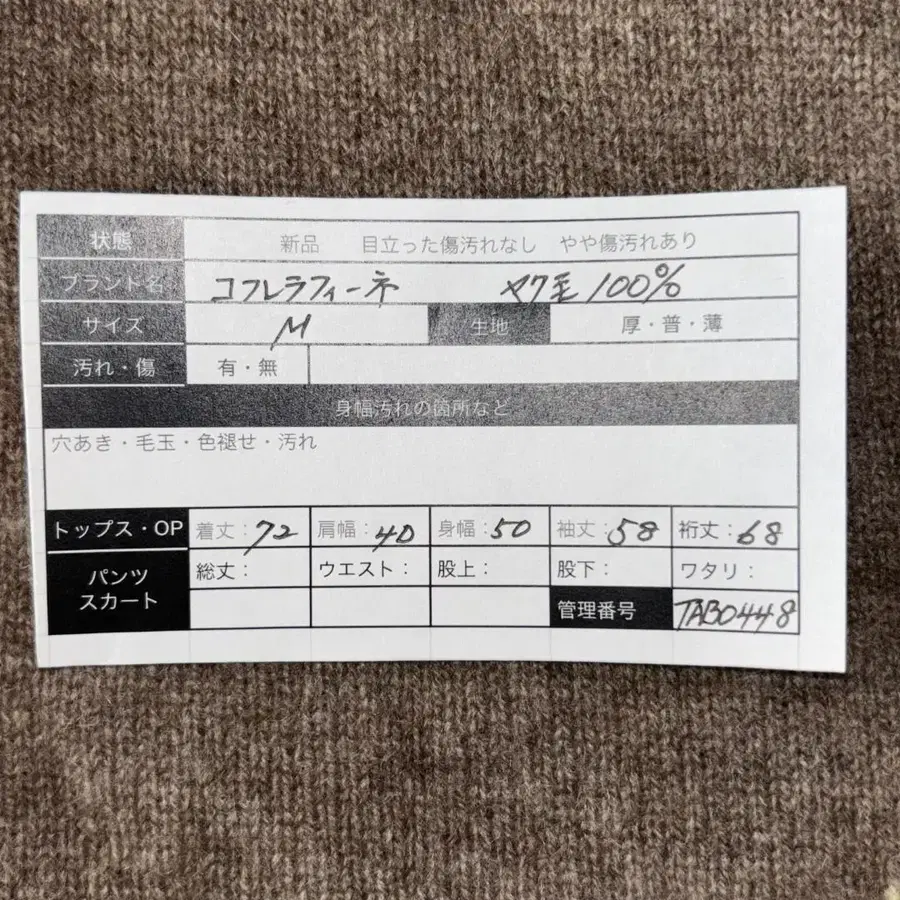 状態 新品 目立った傷汚れなし やや傷汚れあり
ブランド名 コフレラフィーネ ヤク毛100%
サイズ M 生地 厚・普・薄
汚れ・傷 有・無
身幅汚れの箇所など
穴あき・毛玉・色褪せ・汚れ
トップス・OP 着丈:72 肩幅:40 身幅:50 袖丈:58 裄丈:68
パンツ スカート 総丈: ウエスト: 股上: 股下: ワタリ:
管理番号 TAB0448